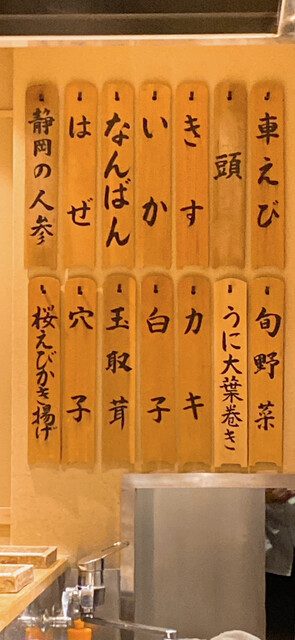 車えび
頭
きす
いか
なんばん
はぜ
静岡の人参
旬野菜
うに大葉巻き
カキ
白子
玉取茸
穴子
桜えびかき揚げ